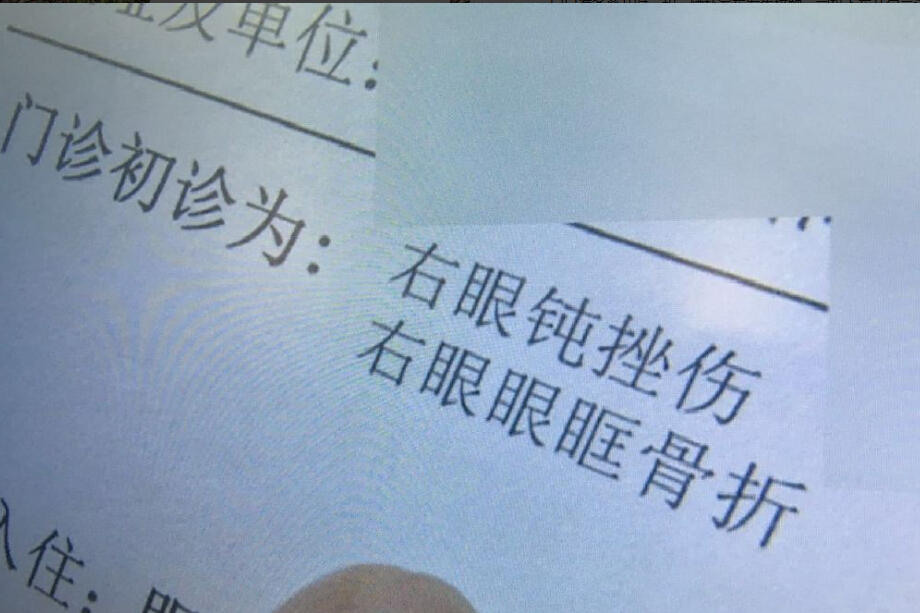 业及单位:
门诊初诊为:
右眼钝挫伤
右眼眼眶骨折
入住: